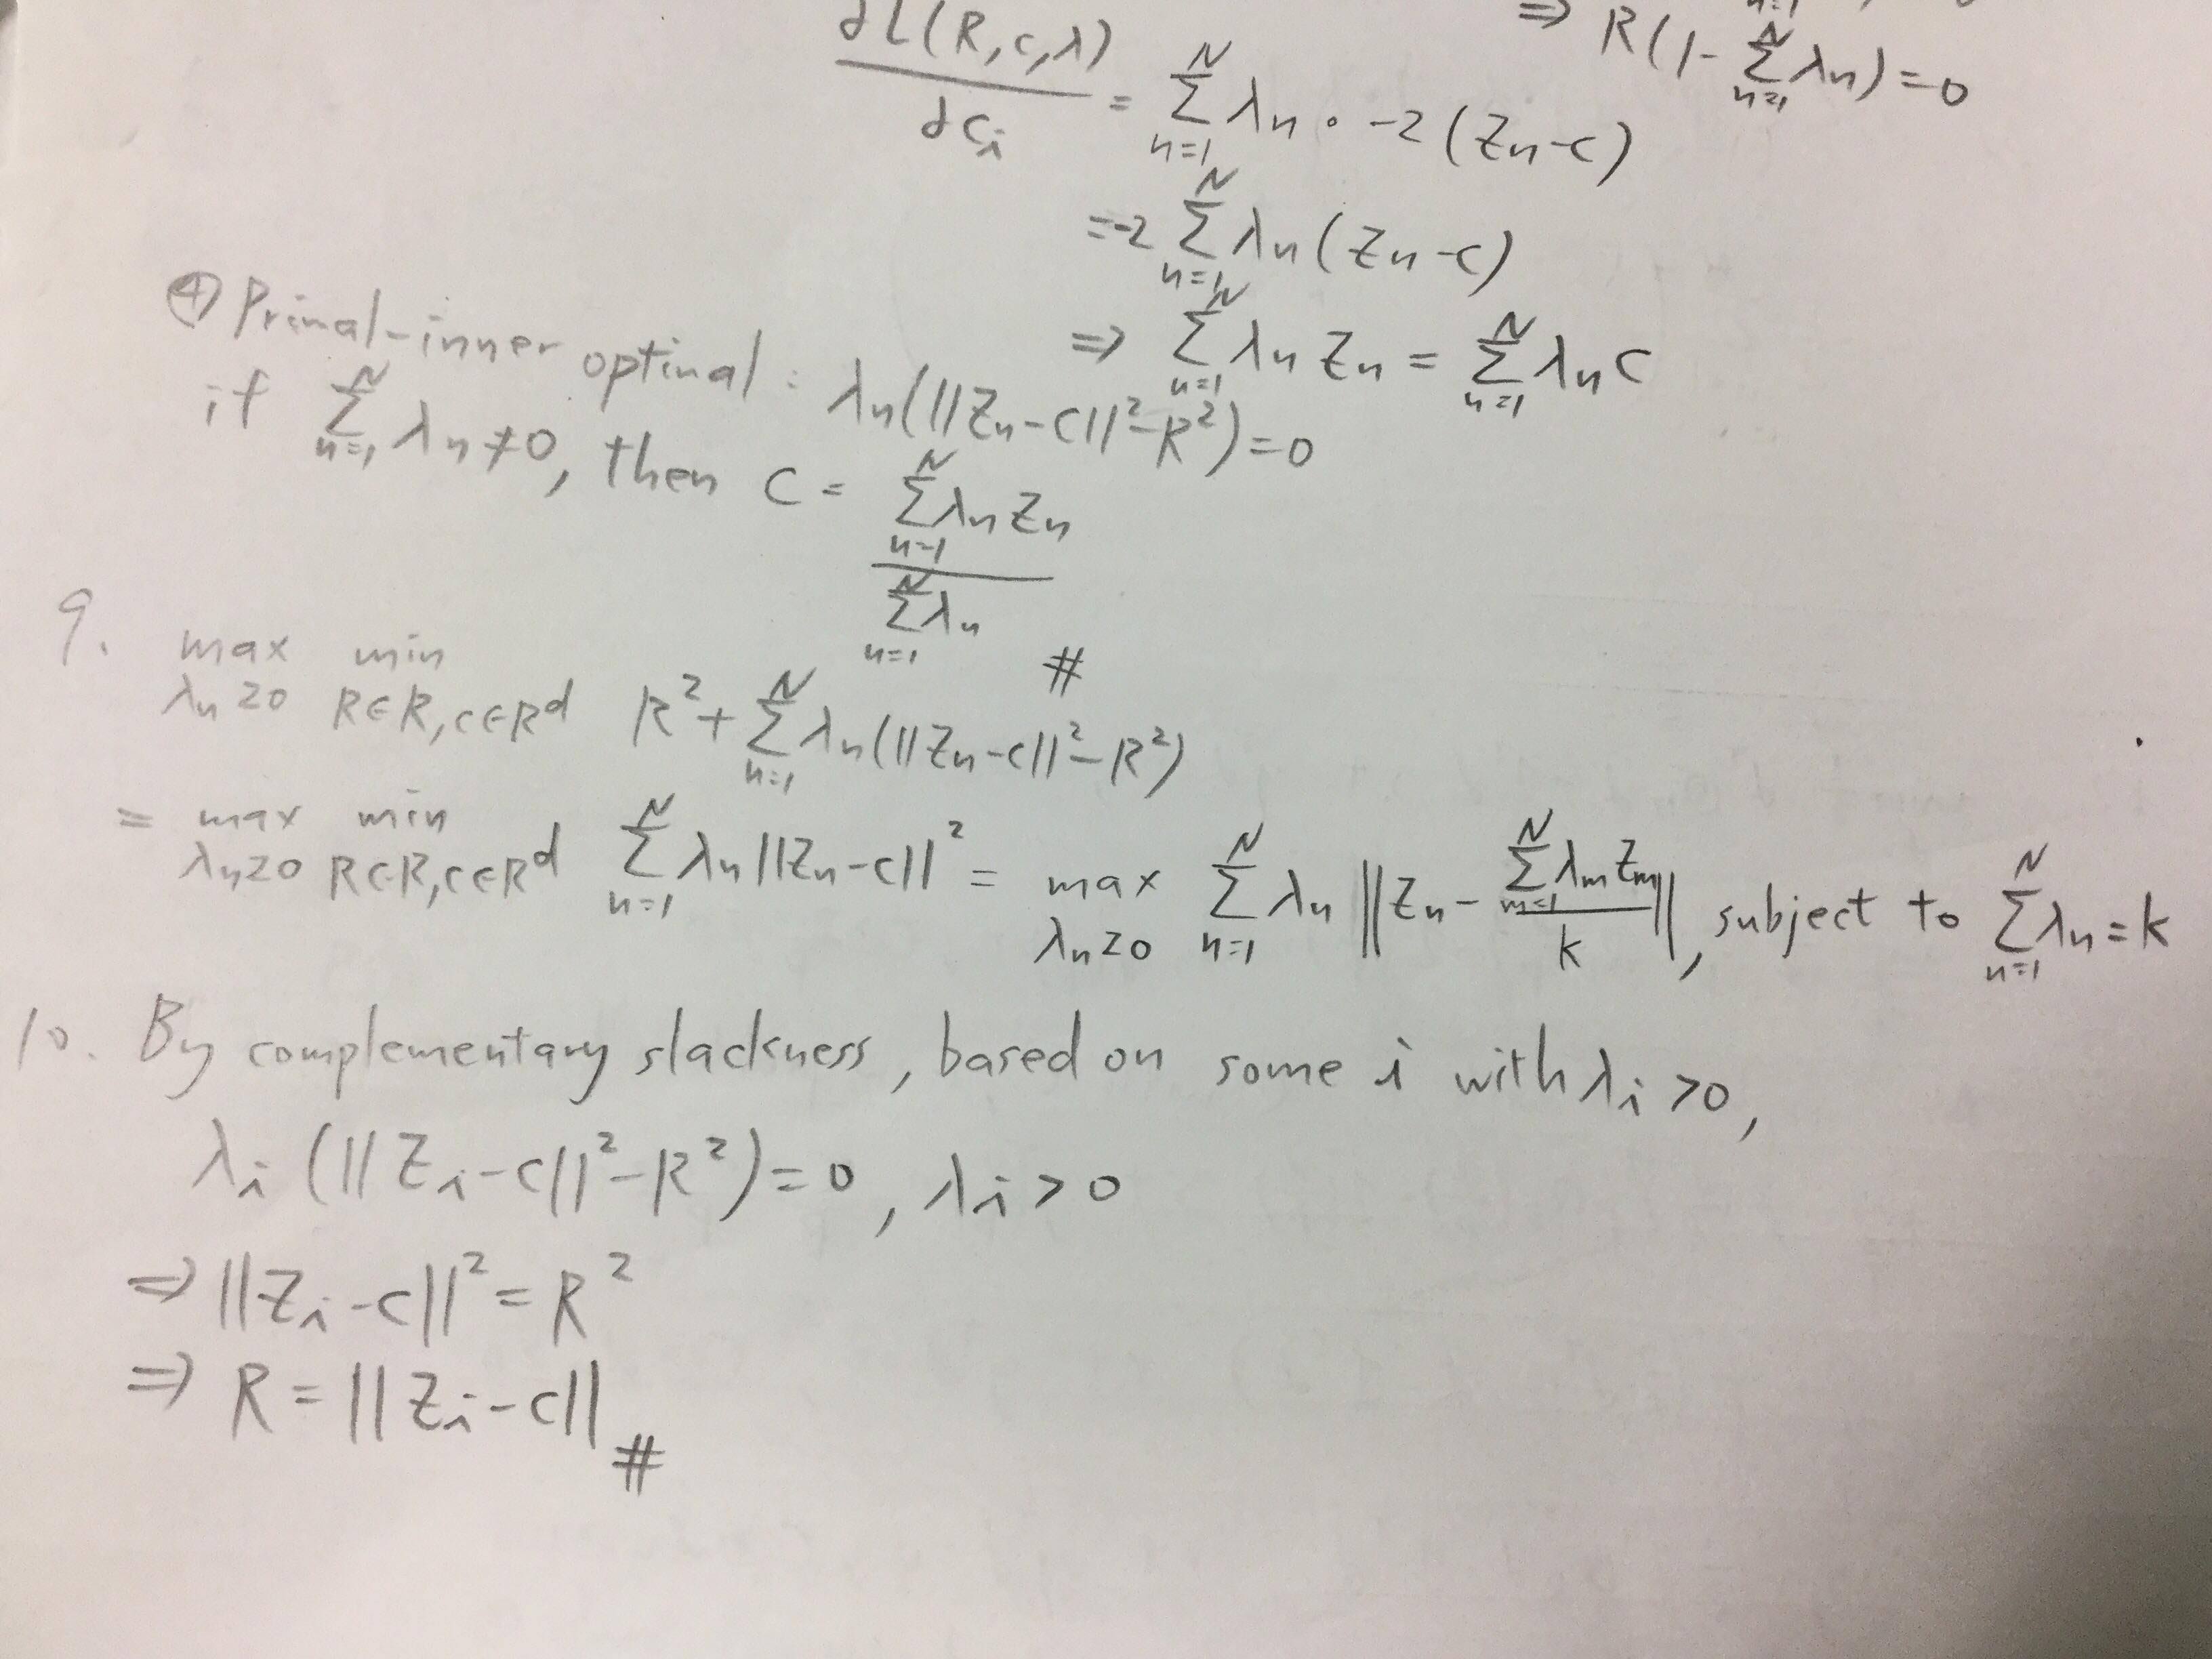 ∂L(R,c,λ)/∂c_i = Σ_{n=1}^{N} λ_n · -2(Z_n-c)
⇒ R(1-Σ_{n=1}^{N} λ_n)=0
=-2 Σ_{n=1}^{N} λ_n(Z_n-c)
⇒ Σ_{n=1}^{N} λ_n Z_n = Σ_{n=1}^{N} λ_n c
④ Primal-inner optimal: λ_n(||Z_n-c||²-R²)=0
if Σ_{n=1}^{N} λ_n≠0, then c = Σ_{n=1}^{N} λ_n Z_n / Σ_{n=1}^{N} λ_n #
9. max_{λ_n≥0} min_{R∈R, c∈R^d} R²+Σ_{n=1}^{N} λ_n(||Z_n-c||²-R²)
= max_{λ_n≥0} min_{R∈R, c∈R^d} Σ_{n=1}^{N} λ_n||Z_n-c||² = max_{λ_n≥0} Σ_{n=1}^{N} λ_n ||Z_n - Σ_{m=1}^{N} λ_m Z_m / k||, subject to Σ_{n=1}^{N} λ_n=k
10. By complementary slackness, based on some i with λ_i>0,
λ_i (||Z_i-c||²-R²)=0, λ_i>0
⇒ ||Z_i-c||²=R²
⇒ R=||Z_i-c|| #